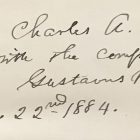 Charles A.
with the comp
Gustavus
. 22nd 1884.